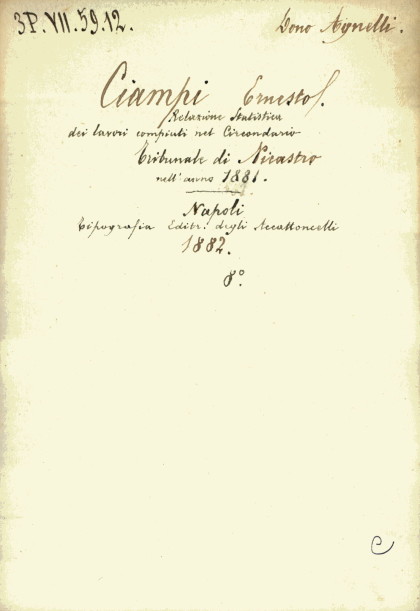 3P.VII.59.12.
Dono Agnelli.
Ciampi Ernesto.
Relazione Statistica
dei lavori compiuti nel Circondario
Tribunale di Nicastro
nell'anno 1881.
Napoli
Tipografia Editr: degli Accattoncelli
1882.
8º.